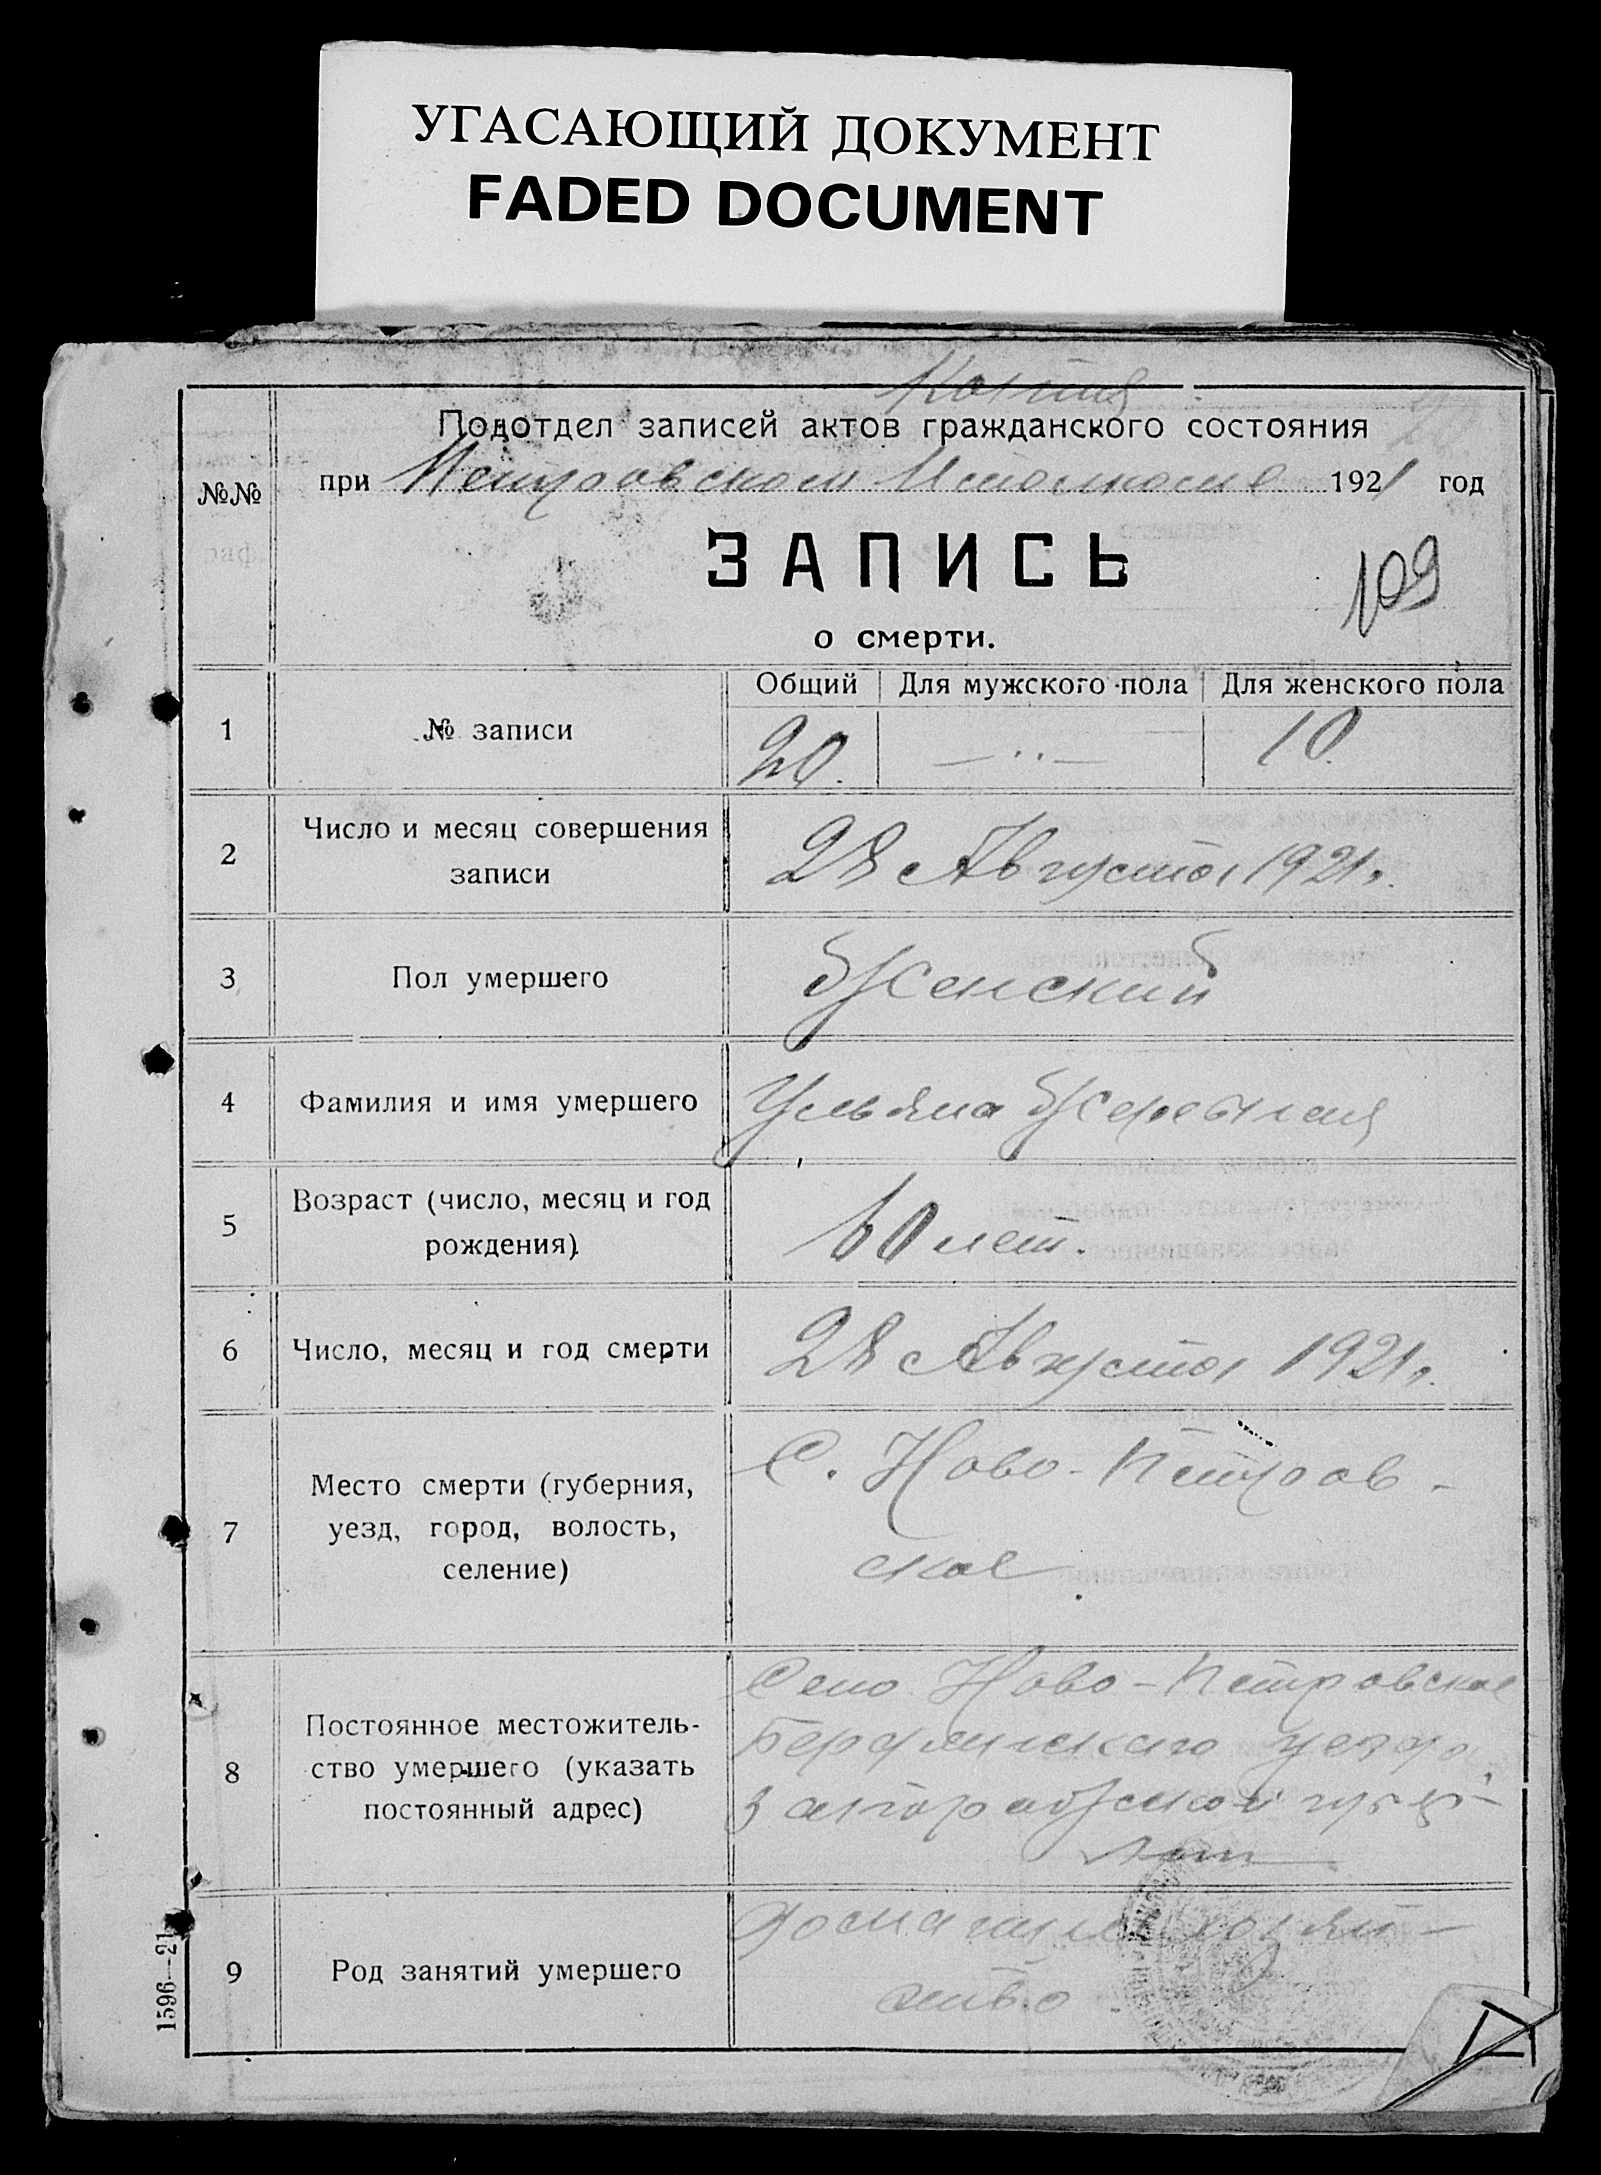 УГАСАЮЩИЙ ДОКУМЕНТ
FADED DOCUMENT
Копия
Подотдел записей актов гражданского состояния
№№ при Петровском Исполкоме 1921 год
ЗАПИСЬ
109
о смерти.
Общий Для мужского пола Для женского пола
1 № записи 20. — ·· — 10.
2 Число и месяц совершения записи
28 Августа 1921 г.
3 Пол умершего Женский
4 Фамилия и имя умершего Ульяна
5 Возраст (число, месяц и год рождения)
60 лет.
6 Число, месяц и год смерти 28 Августа 1921 г.
7 Место смерти (губерния, уезд, город, волость, селение)
С. Ново-Петров-
ское
8 Постоянное местожитель-
ство умершего (указать
постоянный адрес)
Село Ново-Петровское
Бердянского уезда
Запорожской губ
9 Род занятий умершего
домашнее хозяй-
ство
1596—21